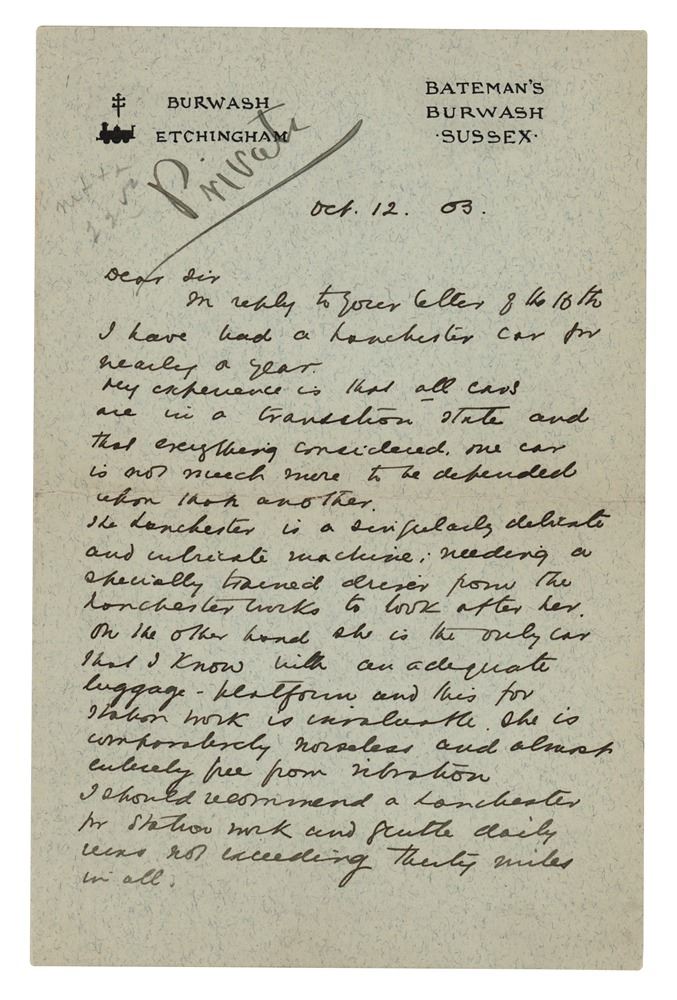 BURWASH
ETCHINGHAM
BATEMAN'S
BURWASH
·SUSSEX·
Private
Oct. 12. 03.
Dear Sir
In reply to your letter of the 10th
I have had a Lanchester car for
nearly a year.
My experience is that all cars
are in a transition state and
that everything considered, one car
is not much more to be depended
upon than another.
The Lanchester is a singularly delicate
and intricate machine; needing a
specially trained driver from the
Lanchester works to look after her.
On the other hand she is the only car
that I know with an adequate
luggage-platform and this for
station work is invaluable. She is
comparatively noiseless and almost
entirely free from vibration
I should recommend a Lanchester
for station work and gentle daily
runs not exceeding thirty miles
in all.